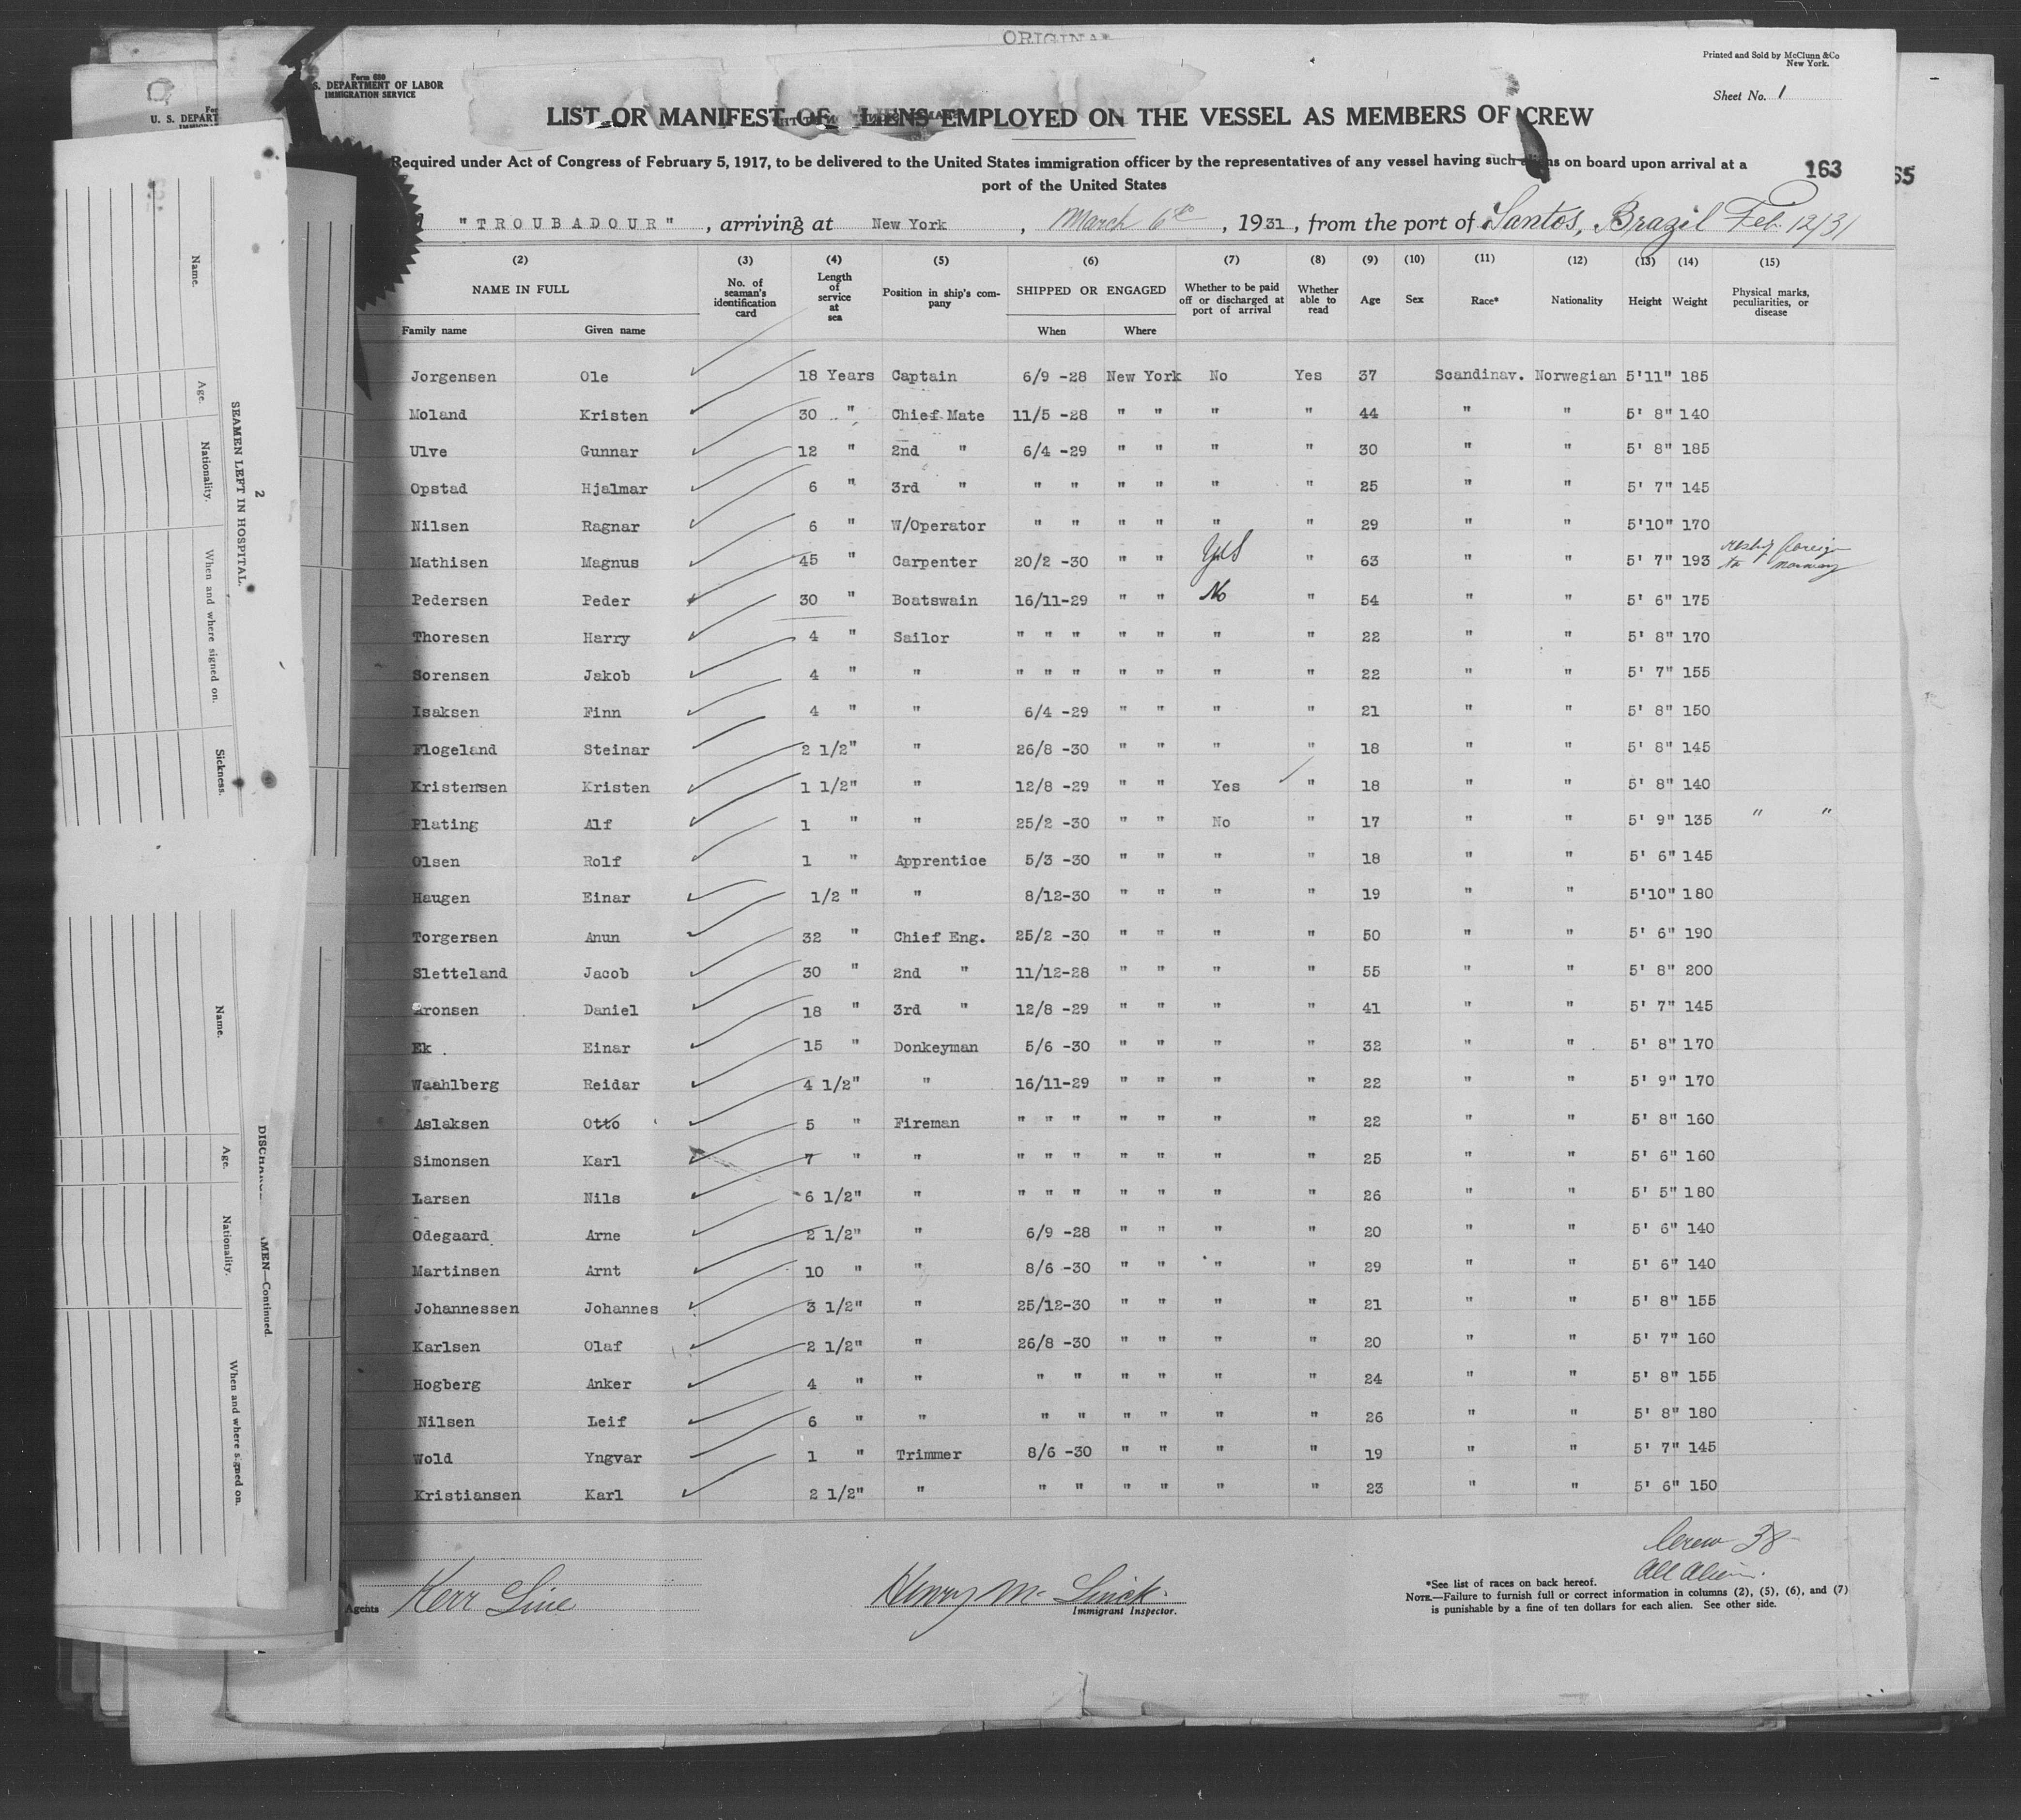 ORIGINA
Form 680
S. DEPARTMENT OF LABOR
IMMIGRATION SERVICE
Printed and Sold by McClunn & Co
New York.
Sheet No. 1
LIST OR MANIFEST OF LIENS EMPLOYED ON THE VESSEL AS MEMBERS OF CREW
Required under Act of Congress of February 5, 1917, to be delivered to the United States immigration officer by the representatives of any vessel having such aliens on board upon arrival at a
port of the United States
163
65
"TROUBADOUR" , arriving at New York , March 6th , 1931 , from the port of Santos, Brazil Feb. 12/31
(2) (3) (4) (5) (6) (7) (8) (9) (10) (11) (12) (13) (14) (15)
NAME IN FULL No. of seaman's identification card Length of service at sea Position in ship's company SHIPPED OR ENGAGED Whether to be paid off or discharged at port of arrival Whether able to read Age Sex Race* Nationality Height Weight Physical marks, peculiarities, or disease
Family name Given name When Where
Jorgensen Ole 18 Years Captain 6/9 -28 New York No Yes 37 Scandinav. Norwegian 5'11" 185
Moland Kristen 30 " Chief Mate 11/5 -28 " " " " 44 " " 5' 8" 140
Ulve Gunnar 12 " 2nd " 6/4 -29 " " " " 30 " " 5' 8" 185
Opstad Hjalmar 6 " 3rd " " " " " " " 25 " " 5' 7" 145
Nilsen Ragnar 6 " W/Operator " " " " " " 29 " " 5'10" 170
Mathisen Magnus 45 " Carpenter 20/2 -30 " " Yes " 63 " " 5' 7" 193 reship foreign to Norway
Pedersen Peder 30 " Boatswain 16/11-29 " " No " 54 " " 5' 6" 175
Thoresen Harry 4 " Sailor " " " " " " " 22 " " 5' 8" 170
Sorensen Jakob 4 " " " " " " " " " 22 " " 5' 7" 155
Isaksen Finn 4 " " 6/4 -29 " " " " 21 " " 5' 8" 150
Flogeland Steinar 2 1/2" " 26/8 -30 " " " " 18 " " 5' 8" 145
Kristensen Kristen 1 1/2" " 12/8 -29 " " Yes " 18 " " 5' 8" 140
Plating Alf 1 " " 25/2 -30 " " No " 17 " " 5' 9" 135 " "
Olsen Rolf 1 " Apprentice 5/3 -30 " " " " 18 " " 5' 6" 145
Haugen Einar 1/2 " " 8/12-30 " " " " 19 " " 5'10" 180
Torgersen Anun 32 " Chief Eng. 25/2 -30 " " " " 50 " " 5' 6" 190
Sletteland Jacob 30 " 2nd " 11/12-28 " " " " 55 " " 5' 8" 200
Aronsen Daniel 18 " 3rd " 12/8 -29 " " " " 41 " " 5' 7" 145
Ek . Einar 15 " Donkeyman 5/6 -30 " " " " 32 " " 5' 8" 170
Waahlberg Reidar 4 1/2" " 16/11-29 " " " " 22 " " 5' 9" 170
Aslaksen Otto 5 " Fireman " " " " " " " 22 " " 5' 8" 160
Simonsen Karl 7 " " " " " " " " " 25 " " 5' 6" 160
Larsen Nils 6 1/2" " " " " " " " " 26 " " 5' 5" 180
Odegaard Arne 2 1/2" " 6/9 -28 " " " " 20 " " 5' 6" 140
Martinsen Arnt 10 " " 8/6 -30 " " " " 29 " " 5' 6" 140
Johannessen Johannes 3 1/2" " 25/12-30 " " " " 21 " " 5' 8" 155
Karlsen Olaf 2 1/2" " 26/8 -30 " " " " 20 " " 5' 7" 160
Hogberg Anker 4 " " " " " " " " 24 " " 5' 8" 155
Nilsen Leif 6 " " " " " " " " 26 " " 5' 8" 180
Wold Yngvar 1 " Trimmer 8/6 -30 " " " " 19 " " 5' 7" 145
Kristiansen Karl 2 1/2" " " " " " " " 23 " " 5' 6" 150
Crew 38
All Alien.
Agents Kerr Line
Henry M
Immigrant Inspector.
*See list of races on back hereof.
NOTE.—Failure to furnish full or correct information in columns (2), (5), (6), and (7)
is punishable by a fine of ten dollars for each alien. See other side.
For
U. S. DEPART
2
SEAMEN LEFT IN HOSPITAL.
Name. Age. Nationality. When and where signed on. Sickness.
AMEN—Continued.
Name. Age. Nationality. When and where signed on.